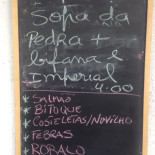 Sopa da
Pedra +
bifana e
Imperial
4.00
* SALMÃO
* BITOQUE
* COSTELETAS/NOVILHO
* FEBRAS
* ROBALO